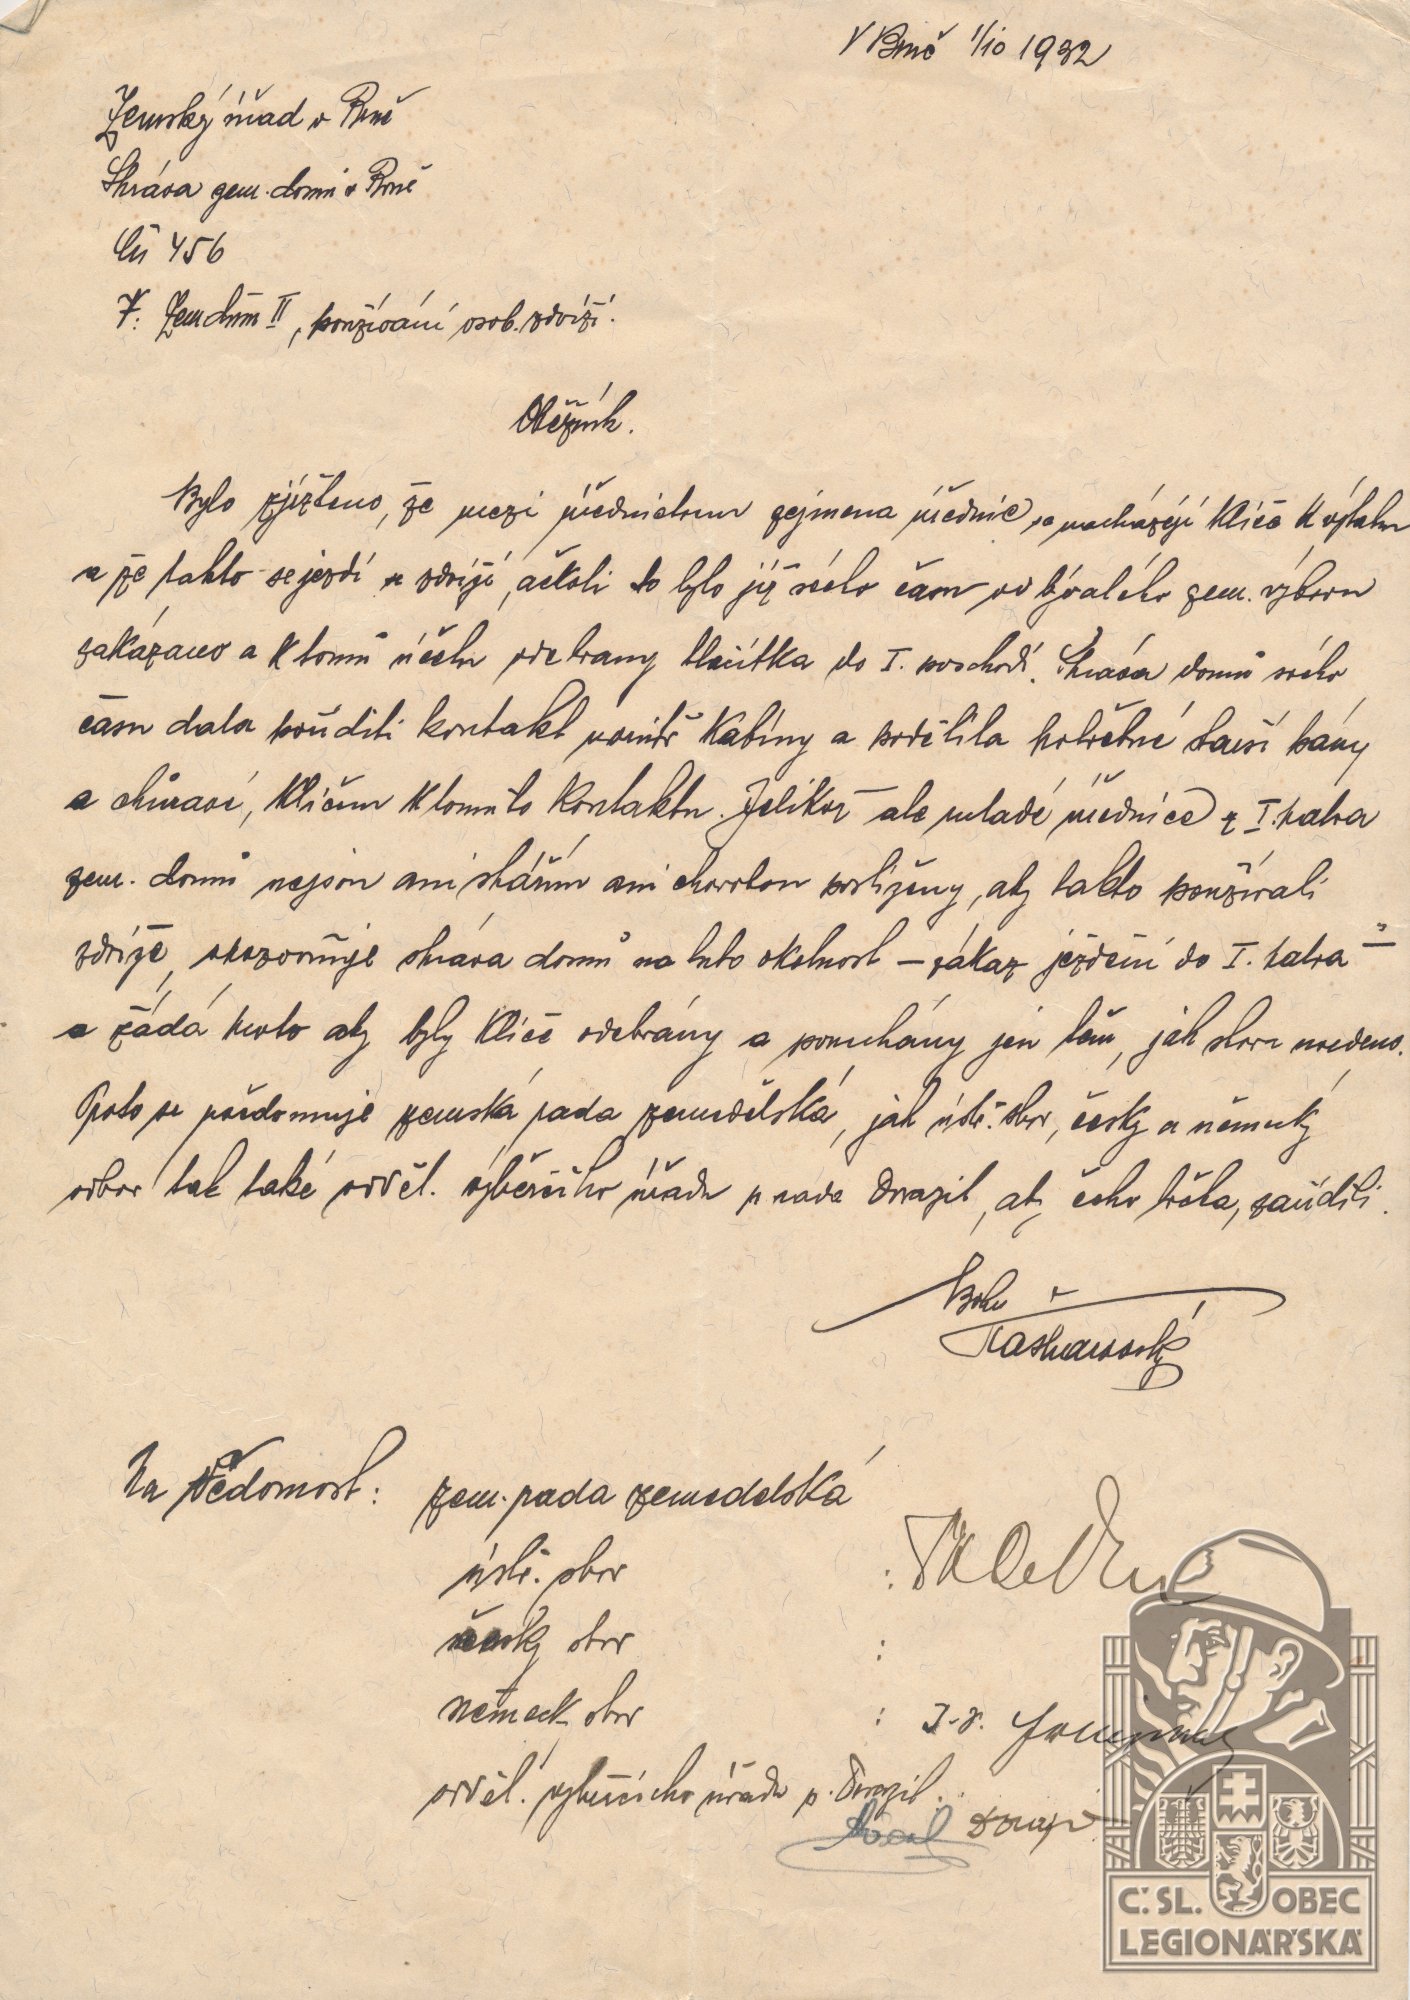 V Brně 1/10 1932
Zemský úřad v Brně
Správa zem. domů v Brně
Čís 456
V: Zem dům II, používání osob. zdviží.
Oběžník.
Bylo zjištěno, že mezi úřednictvem zejmena úřednic se nacházejí klíče k výtahu
a že takto se jezdí na zdviži, ačkoli to bylo již svého času od bývalého zem. výboru
zakázano a k tomu účelu odebrany tlačítka do I. poschodí. Správa domů svého
času dala pořiditi kontakt uvnitř kabiny a podělila potřebné starší pány
a churavé, klíčem k tomuto kontaktu. Jelikož ale mladé úřednice z I. patra
zem. domů nejsou ani stářím ani chorobou postiženy, aby takto používali
zdviže, upozorňuje správa domů na tuto okolnost – zákaz ježdění do I. patra –
a žádá proto aby byly klíče odebrány a ponechány jen těm, jak shora uvedeno.
Proto se uvědomuje zemská rada zemědělská, jak ústř. sbor, česky a německý
odbor tak také odděl. výběrčího úřadu p rada Dorazil, aby, čeho třeba, zařídili.
Na vědomost: zem. rada zemedelská
ústř. sbor :
česky sbor :
německ sbor :
odděl. výběrčícho úřadu p. Dorazil.
Č. SL. OBEC
LEGIONÁŘSKÁ